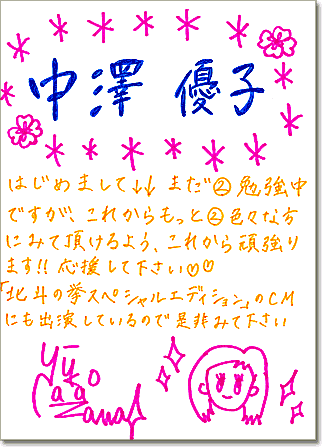 中澤 優子
はじめまして↓↓ まだ②勉強中
ですが、これからもっと②色々な方
にみて頂けるよう、これから頑強り
ます!! 応援して下さい♡♡
「北斗の拳スペシャルエディション」のCM
にも出演しているので是非みて下さい